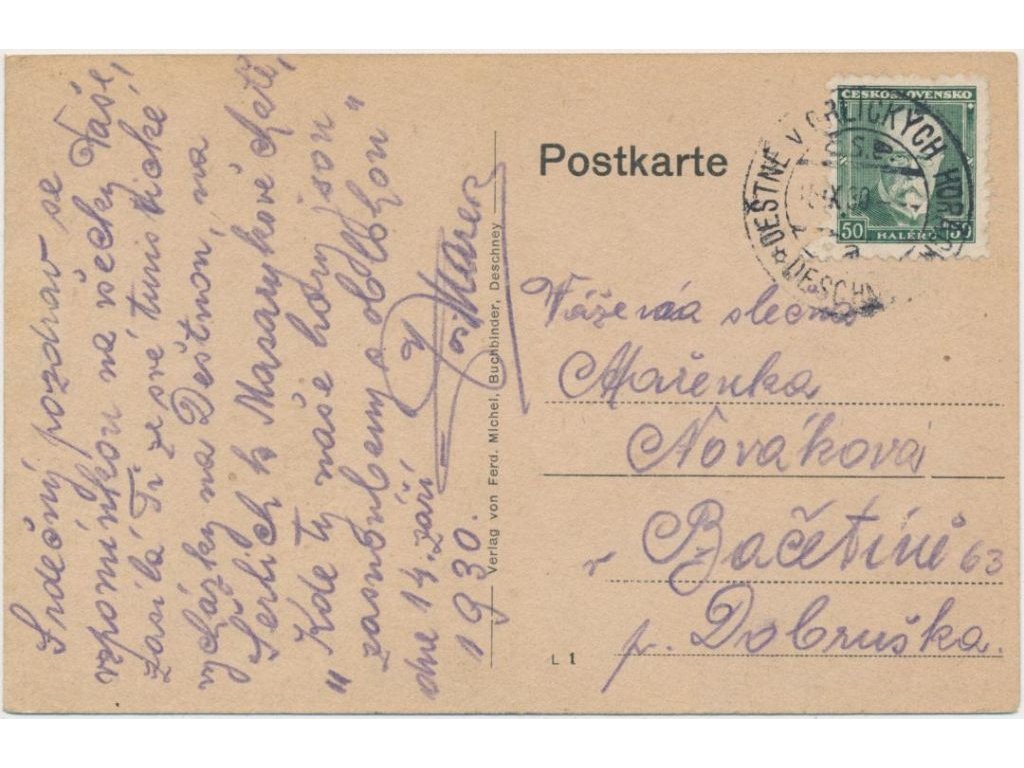 Srdečný pozdrav se
vzpomínkou na všecky Vaše,
zasílá Tr ze své turistické
vycházky na Deštnou, na
Šerlich k Masarykově chatě,
"Kde ty naše hory jsou
zasnoubeny s oblohou"
dne 14. září
1930.
Jos Mare
Verlag von Ferd. Michel, Buchbinder, Deschney
Postkarte
ČESKOSLOVENSKO
50 HALÉŘŮ 50
DEŠTNÉ V ORLICKÝCH HORÁCH
Č.S.P.
IX.30
DESCHN
Vážená slečna
Mařenka
Nováková
v Bačetíně 63
p. Dobruška.
L 1